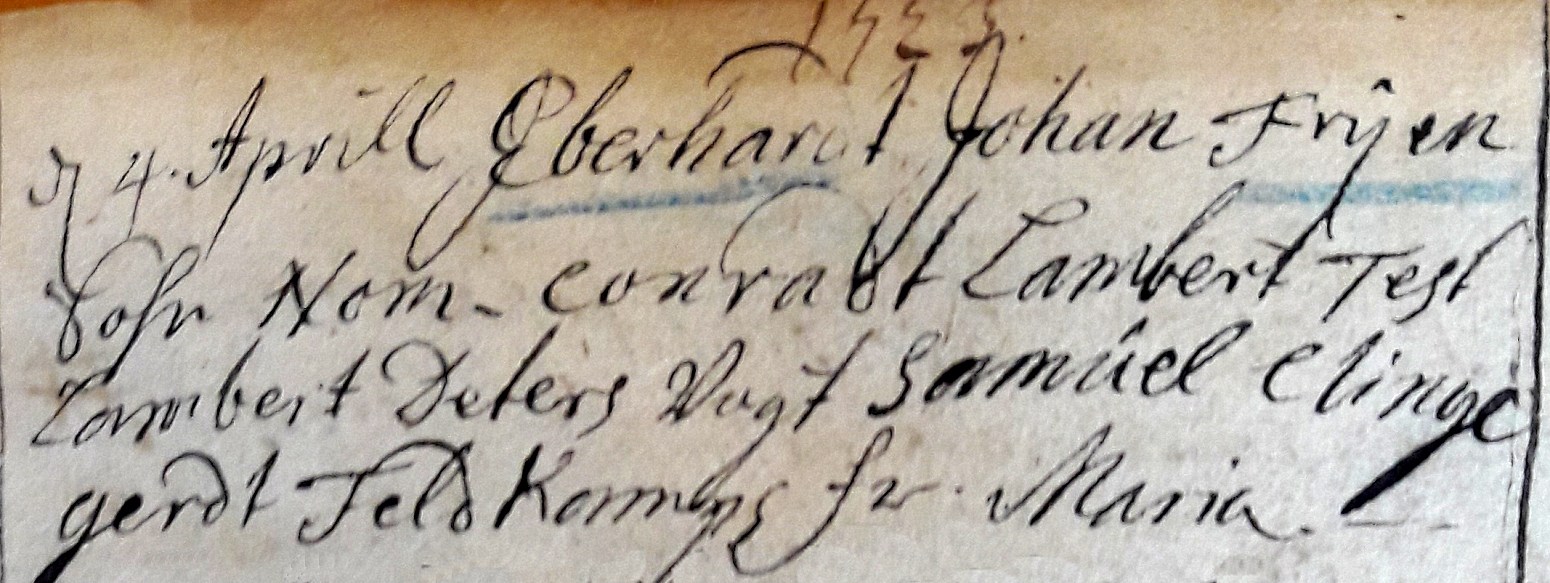 d 4. Aprill Eberhardt Johan Frijen
Sohn Nom. Conradt Lambert Test
Lambert Deters Vogt Samúel Clinge
gerdt Feld Kamps fr. Maria.